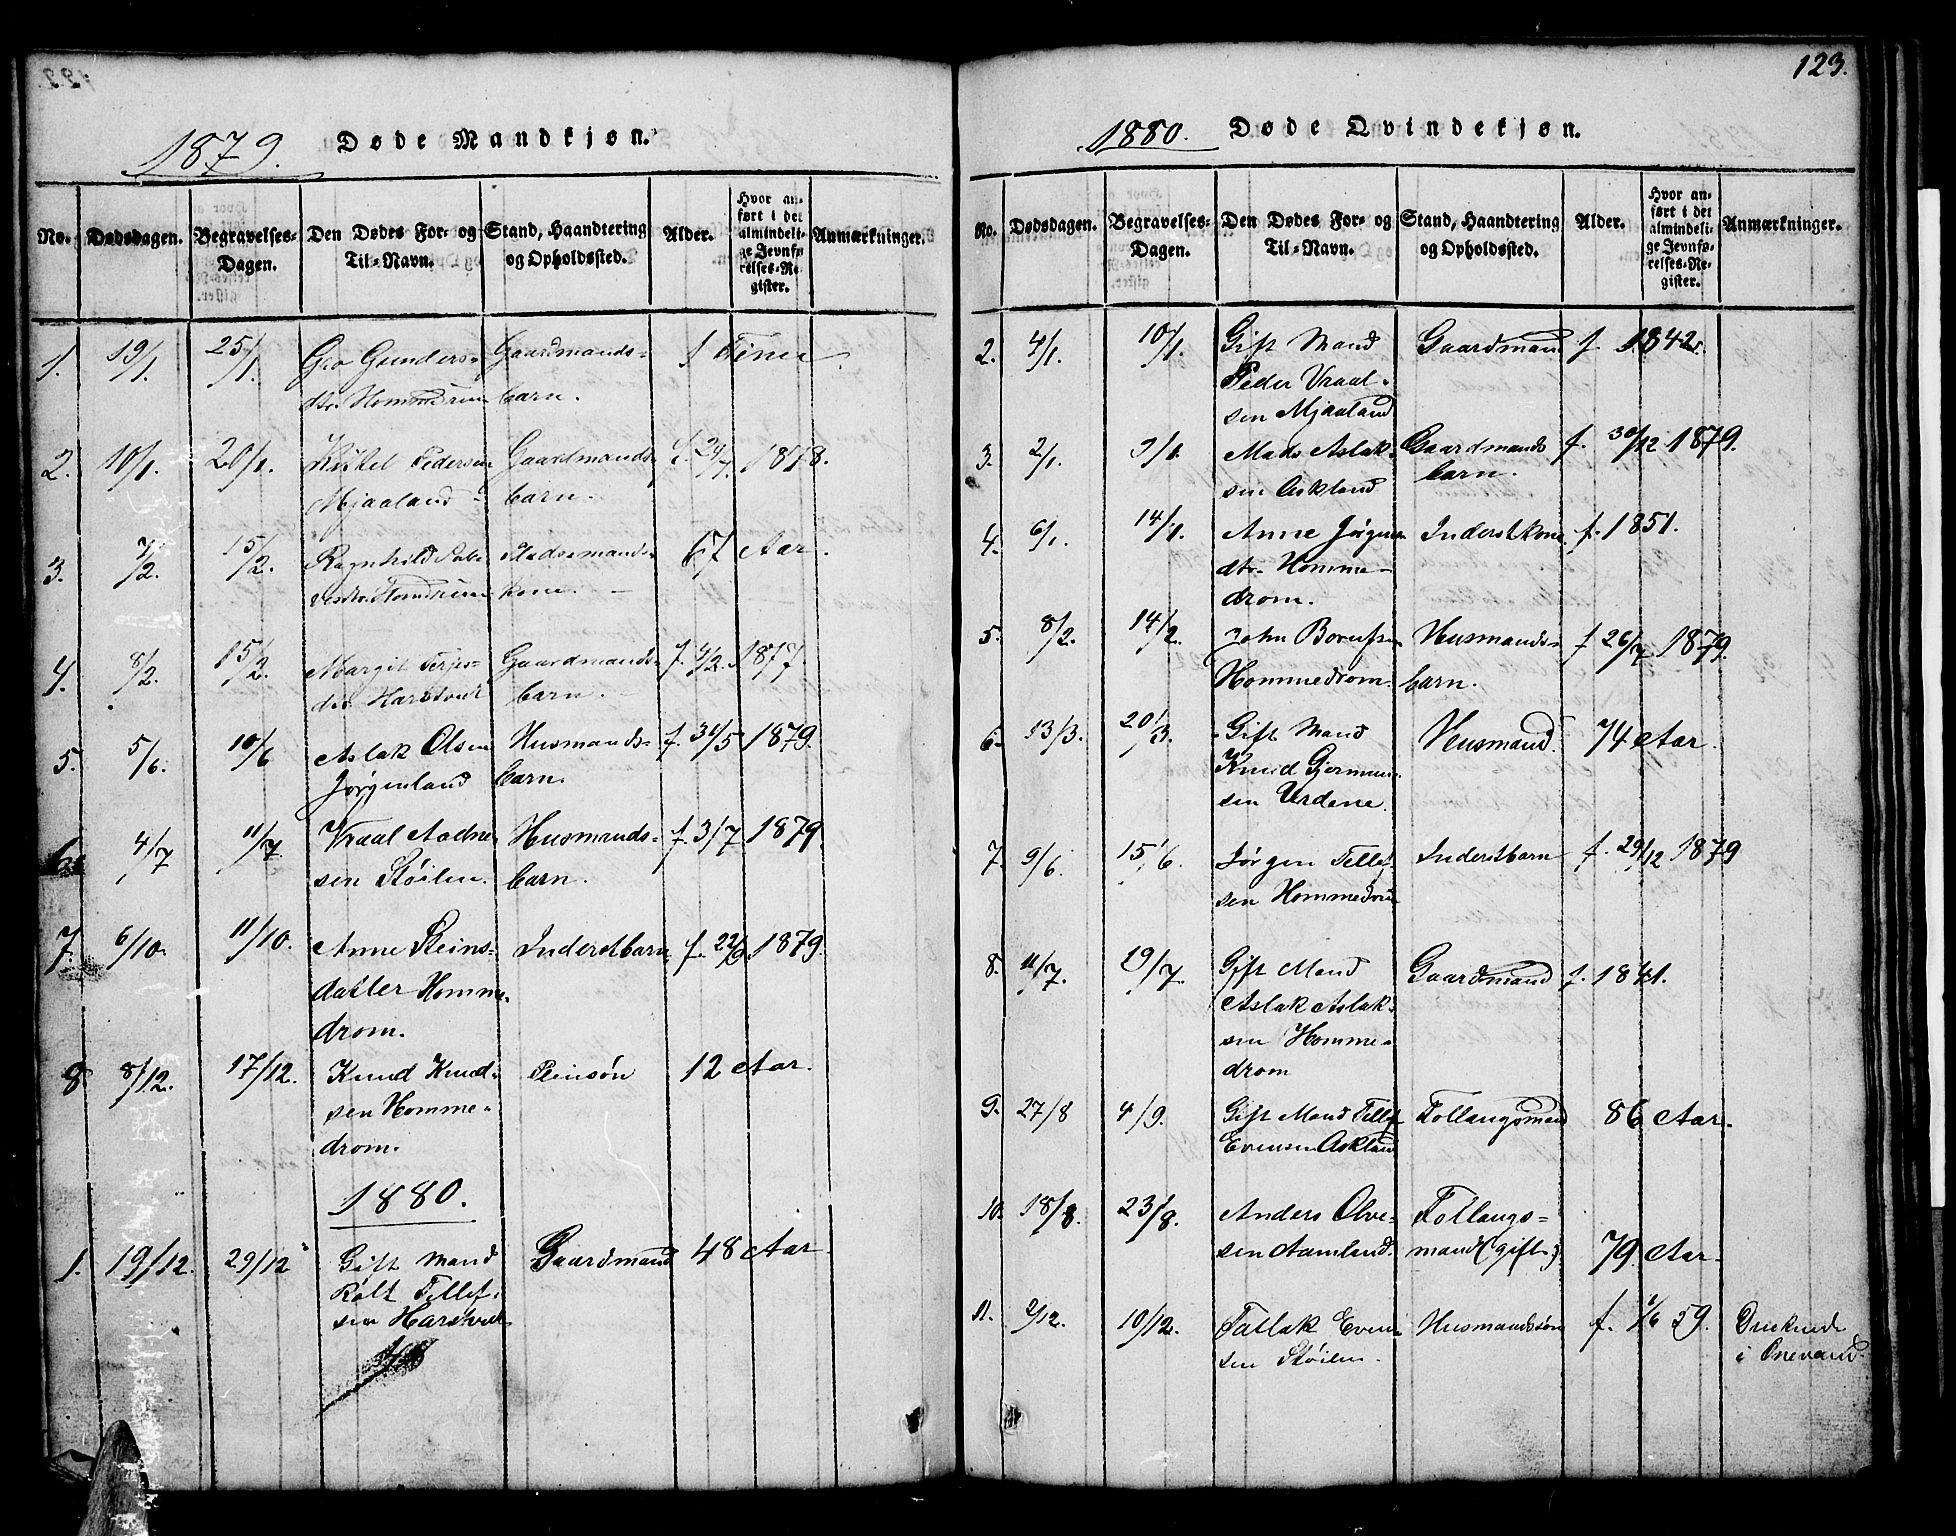 1879. Døde Mandkjøn.
No. Dødsdagen. Begravelses-Dagen. Den Dødes For- og Til-Navn. Stand, Haandtering og Opholdssted. Alder. Hvor anført i det almindelige Jevnførelses-Register. Anmærkninger.
1. 19/1. 25/1. Gro Gunders- Gaardmands- 1 Time
dtr. Hommdrum barn.
2. 10/1. 20/1. Kittel Pedersen Gaardmands- f. 29/7. 1878.
Mjaaland barn.
3. 7/2. 15/2. Ragnhild 67 Aar.
Homdrum kone.
4. 8/2. 15/2. Margit Terjes- Gaardmands- f. 4/2. 1877.
dtr. Harstveit barn.
5. 5/6. 10/6 Aslak Olsen Husmands- f. 30/5 1879.
Jørgenland barn.
6. 4/7 11/7. Vraal Aadne- Husmands- f. 3/7 1879.
sen Støilen. barn.
7. 6/10. 11/10. Anne Steins- Inderstbarn f. 22/9 1879.
datter Homme-
drom.
8 8/12. 17/12. Knud Knud- 12 Aar.
sen Homme-
drom.
1880.
1. 19/12. 29/12 Gift Mand Gaardmand 48 Aar
Rolt Tellef-
sen Harstveit
123.
1880. Døde Qvindekjøn.
No. Dødsdagen. Begravelses-Dagen. Den Dødes For- og Til-Navn. Stand, Haandtering og Opholdssted. Alder. Hvor anført i det almindelige Jevnførelses-Register. Anmærkninger.
2. 4/1. 10/1. Gift Mand Gaardmand f. 1842.
Peder Vraal-
sen Mjaaland
3. 2/1. 9/1. Mads Aslak- Gaardmands f. 30/12 1879.
sen Askland barn.
4. 6/1. 14/1. Anne Jørgens- Inderstkone f. 1851.
dtr. Homme-
drom.
5. 8/2. 14/2. John Borufsen Husmands- f 26/7 1879.
Hommedrom. barn.
6. 13/3. 20/3. Gift Mand Husmand. 74 Aar.
Knud Gjermun-
sen Verdene.
7. 9/6. 15/6. Jørgen Tellef- Inderstbarn f. 29/12 1879
sen Hommedrom
8. 11/7. 29/7. Gift Mand Gaardmand f. 1841.
Aslak Aslak-
sen Homme-
drom
9. 27/8 4/9. Gift Mand Tellef Follaugsmand 86 Aar.
Evensen Askland
10. 18/8. 23/8. Anders Olve- Follaugs-
sen Aamland. mand (gift). 79 Aar.
11. 2/12. 10/12. Tallak Even- Husmandssøn f. 1/6 59. Druknede
sen Støilen. i